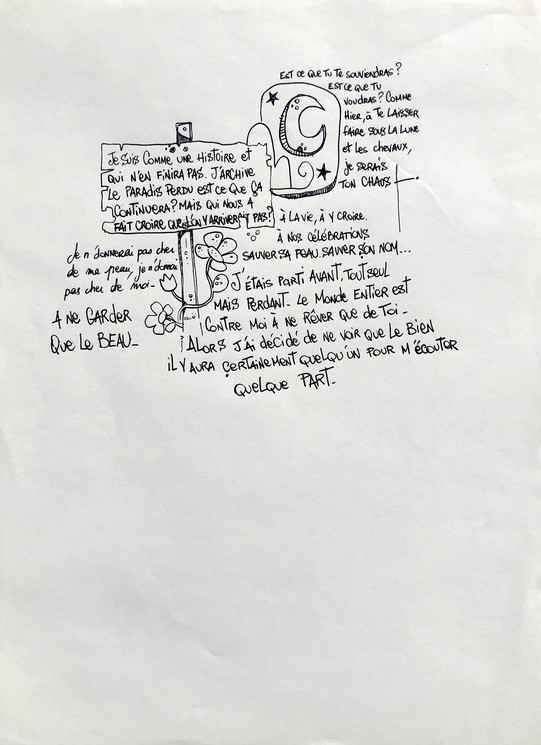 Est ce que tu te souviendras ?
Est ce que tu
voudras ? Comme
Hier, à te laisser
faire sous la lune
et les chevaux,
je serais
ton chaos
Je suis comme une histoire et
qui n'en finira pas. J'archive
le paradis perdu est ce que ça
continuera ? Mais qui nous a
fait croire que l'on y arriverait pas ?
à la vie, à y croire.
à nos célébrations
sauver sa peau. sauver son nom...
Je n'donnerai pas cher
de ma peau, je n'donnerai
pas cher de moi_
A ne garder
que le beau_
J'étais parti avant, tout seul
mais perdant_ le monde entier est
contre moi à ne rêver que de toi_
Alors j'ai décidé de ne voir que le bien
il y aura certainement quelqu'un pour m'écouter
quelque part_